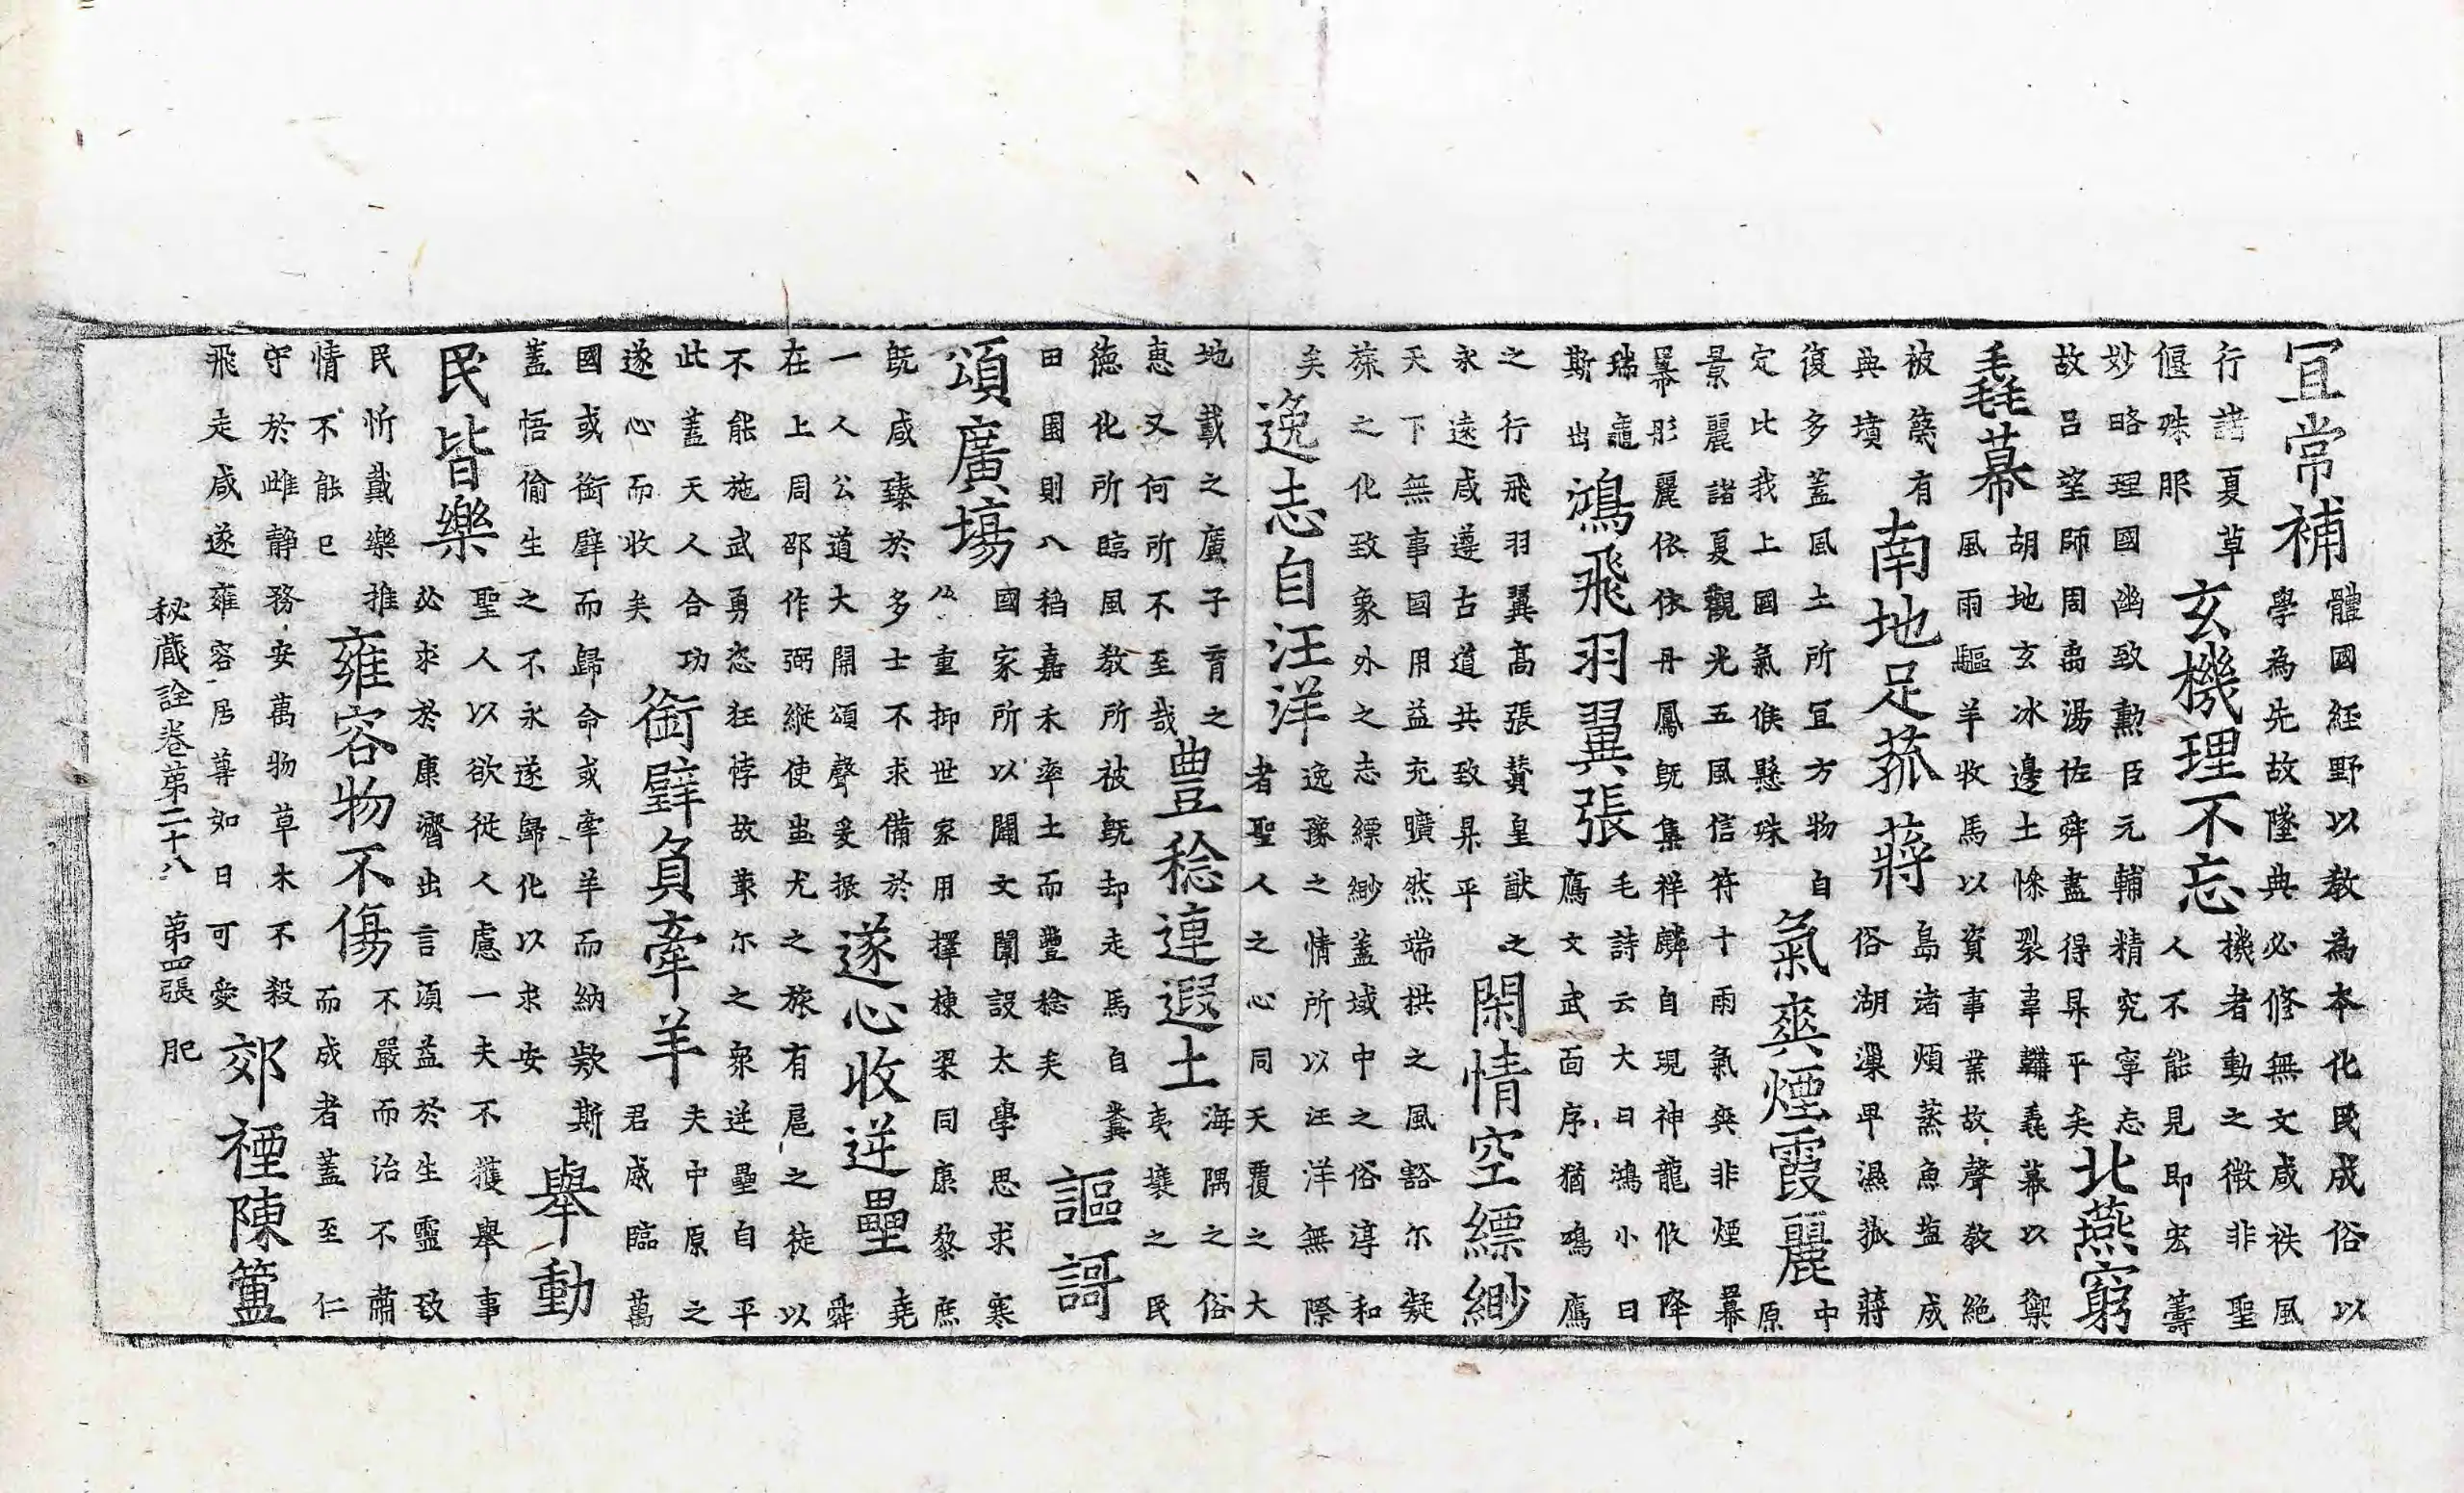 宜常補體國經野以教為本化民成俗以
學為先故墜典必修無文咸袟風
行諸夏草
偃殊服玄機理不忘機者動之微非聖
人不能見即宏籌
妙略理國幽致勳臣元輔精究寧忘
故呂望師周卨湯佐舜盡得昇平矣北燕窮
毳幕胡地玄冰邊土慘裂韋韝毳幕以禦
風雨驅羊牧馬以資事業故聲教絕
被篾有
典墳南地足菰蔣島渚煩蒸魚塩成
俗湖卑濕菰蔣
復多蓋風土所宜方物自
定比我上國氣候懸殊氣爽煙霞麗中
原
景麗諸夏觀光五風信符十雨氣爽非煙冪
冪彤麗依依丹鳳既集祥麟自現神龍攸降
瑞龜
斯出鴻飛羽翼張毛詩云大曰鴻小曰
鴈文武面序猶鴻鴈
之行飛羽翼高張贊皇猷之
永遠咸遵古道共致昇平閑情空縹緲
天下無事國用益充曠然端拱之風豁尔凝
之化致象外之志縹緲蓋域中之俗淳和
矣逸志自汪洋逸豫之情所以汪洋無際
者聖人之心同天覆之大
地載之廣子育之
惠又何所不至哉豊稔連遐土海隅之俗
夷壤之民
德化所臨風教所被既却走馬自糞
田園則八稻嘉禾率土而豐稔矣謳謌
頌廣場國家所以開文闈設太學思求寒
重抑世家用擇棟梁同康黎庶
既咸臻於多士不求備於
一人公道大開頌聲爰振遂心收逆壘堯
舜
在上周邵作弼縱使蚩尤之旅有扈之徒以
不能施武勇恣狂悖故蕞尔之眾逆壘自平
此蓋天人合功
遂心而收矣銜璧負牽羊夫中原之
君威臨萬
國或銜璧而歸命或牽羊而納欵斯
蓋悟偷生之不永遂歸化以求安舉動
民皆樂聖人以欲從人慮一夫不獲舉事
必求於康濟出言須益於生靈致
民忻戴樂推
情不能已雍容物不傷不嚴而治不肅
而成者蓋至仁
守於雌靜務安萬物草木不殺
飛走咸遂雍容居尊如日可愛郊禋陳簠
秘藏詮卷第二十八 第四張 肥